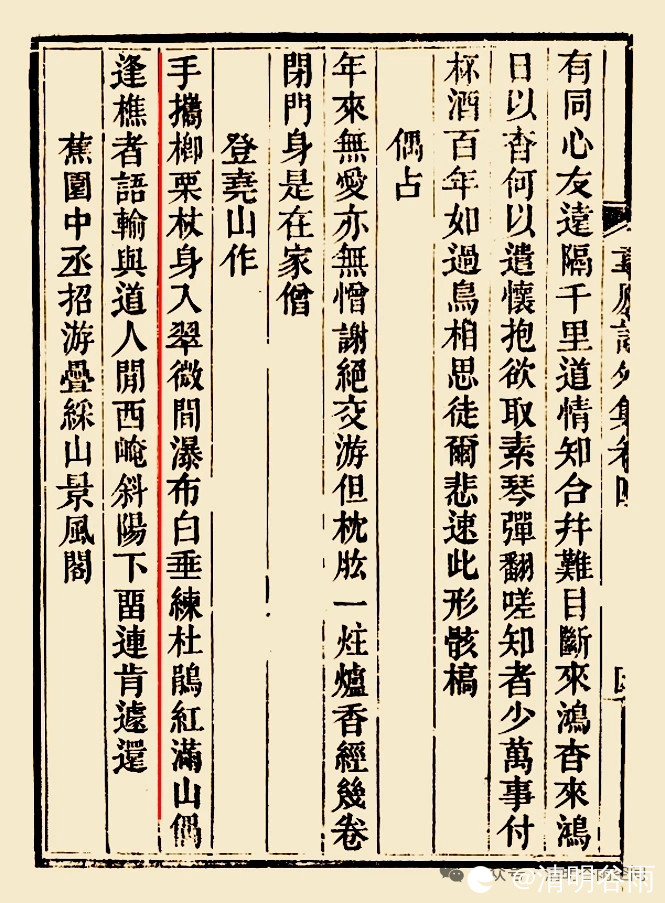 詩外集卷四
有同心友遠隔千里道情知合幷難目斷來鴻杳來鴻
日以杳何以遣懷抱欲取素琴彈翻嗟知者少萬事付
杯酒百年如過鳥相思徒爾悲速此形骸槁
偶占
年來無愛亦無憎謝絕交游但枕肱一炷爐香經幾卷
閉門身是在家僧
登堯山作
手攜楖栗杖身入翠微間瀑布白垂練杜鵑紅滿山偶
逢樵者語輸與道人閒西崦斜陽下畱連肯遽還
蕉園中丞招游疊綵山景風閣
@清明谷雨